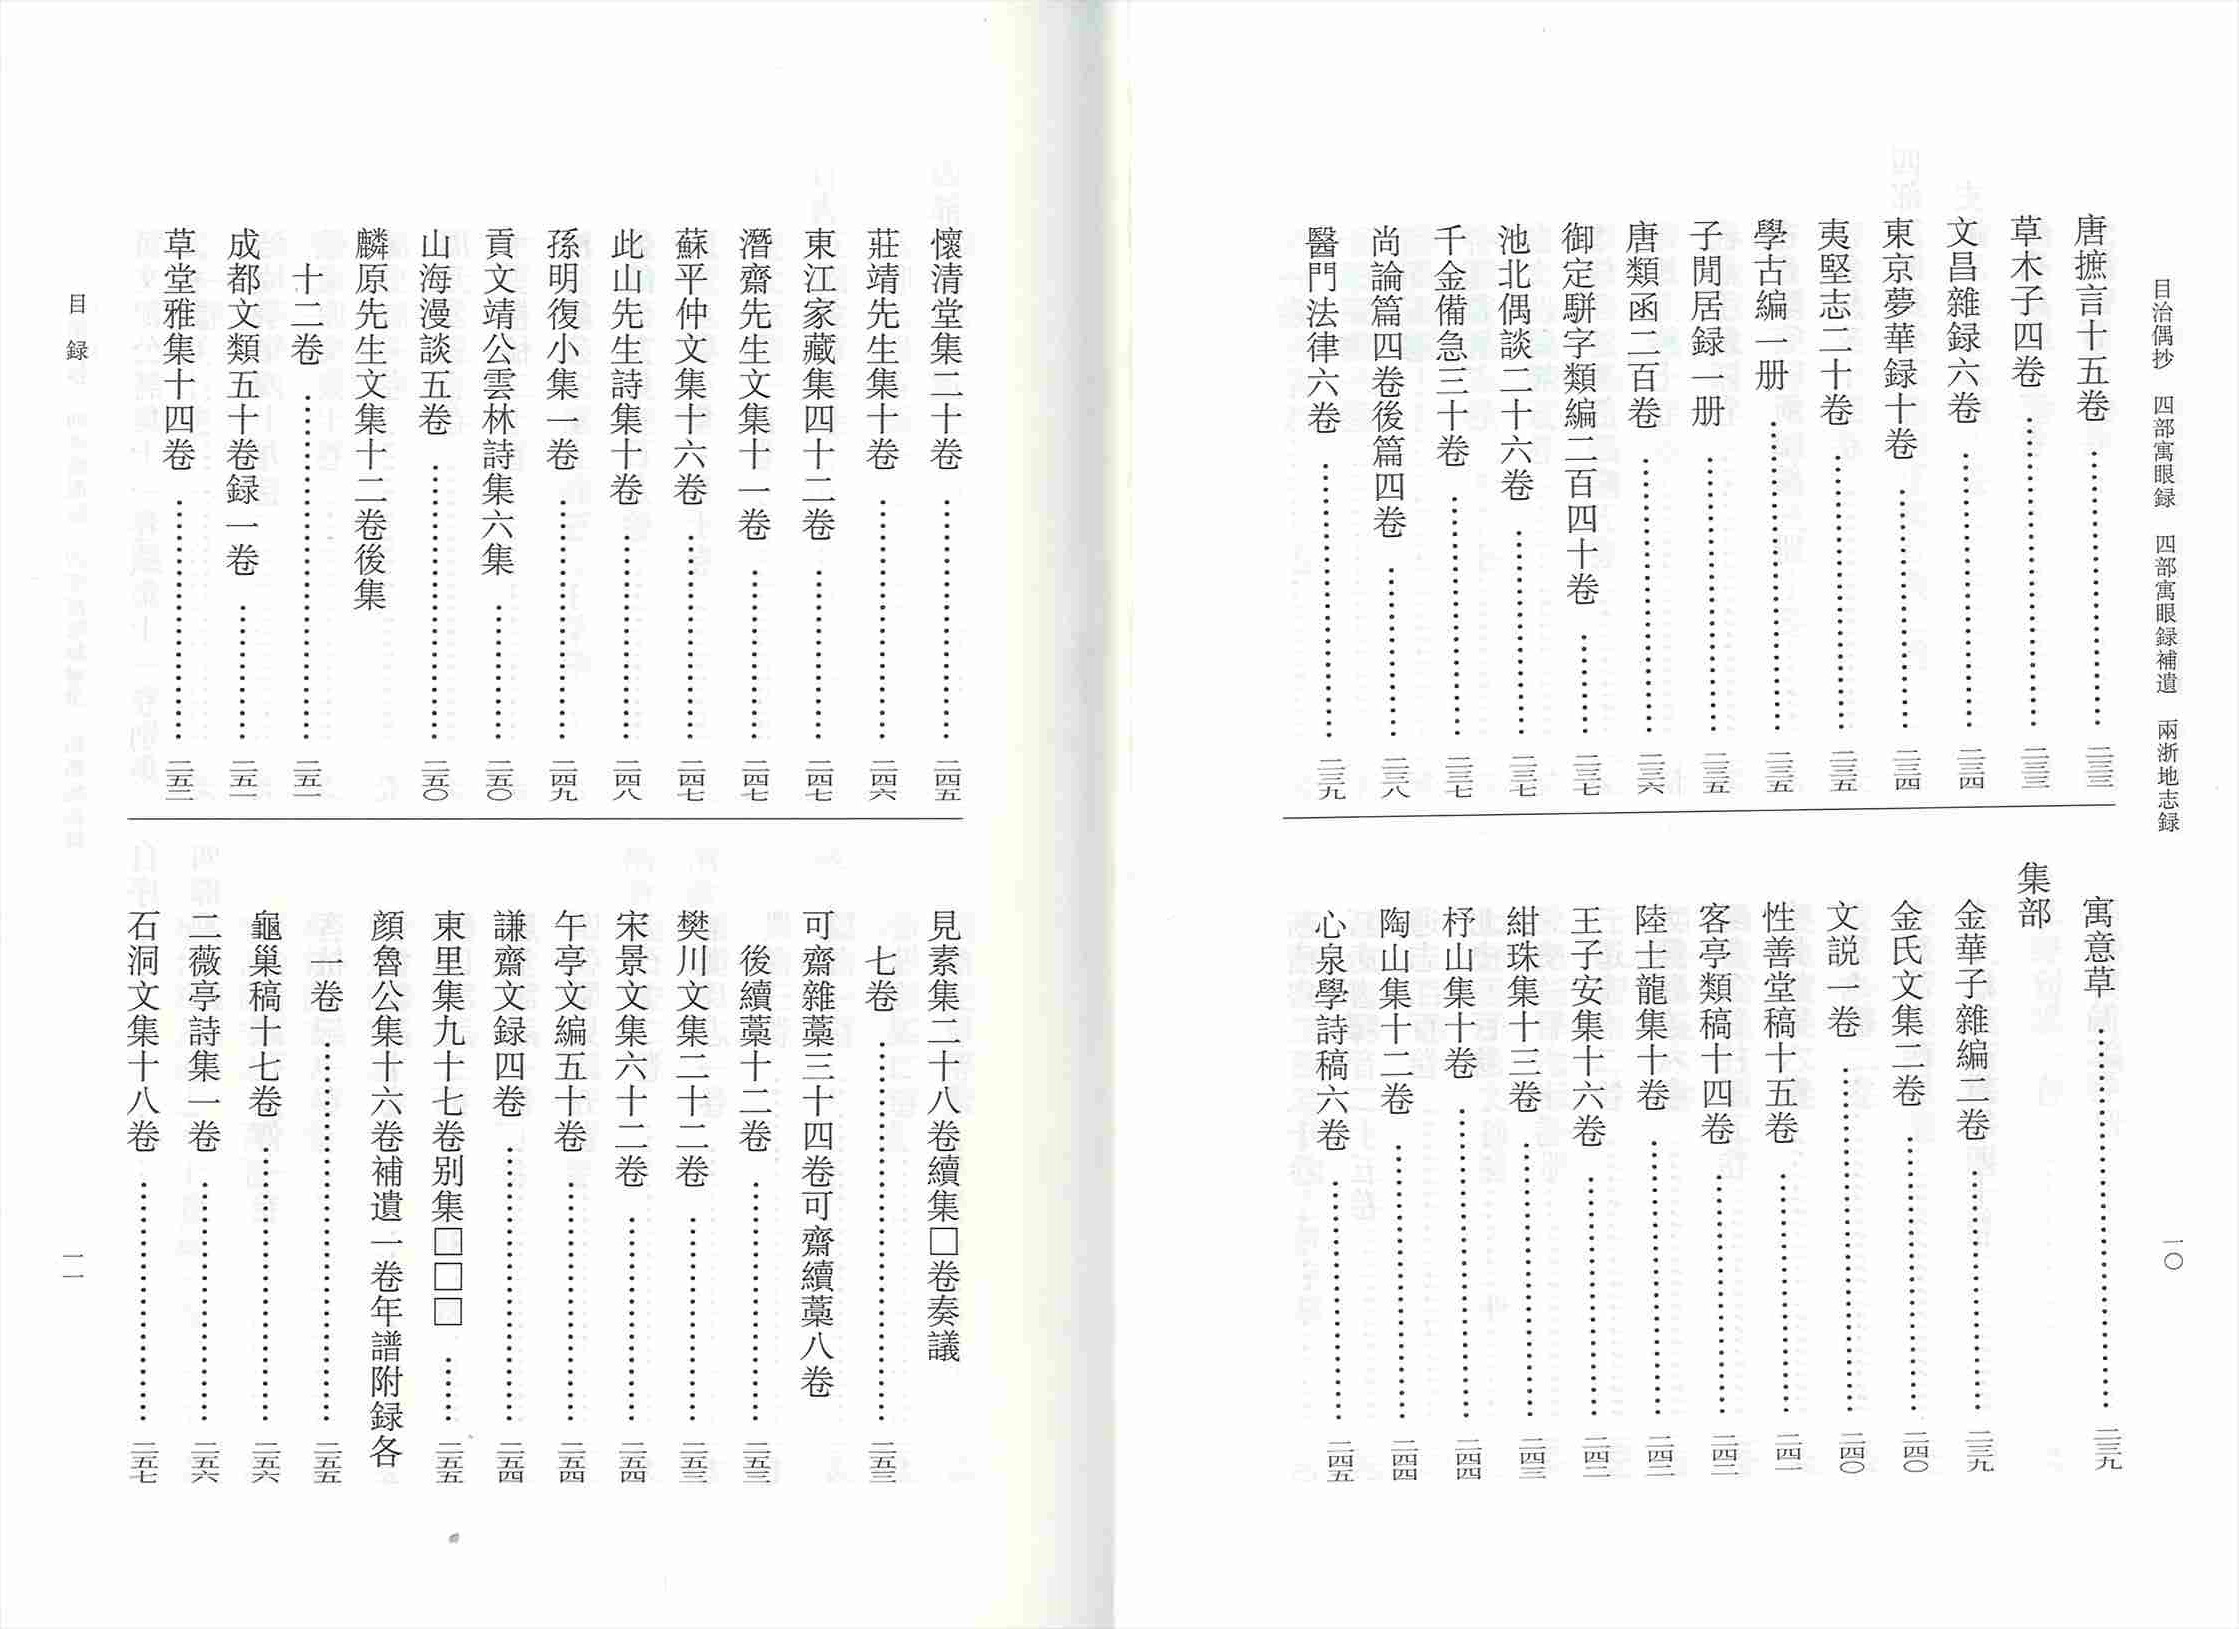 目治偶抄　四部寓眼録　四部寓眼録補遺　兩浙地志録
一〇
唐摭言十五卷……二三三
草木子四卷……二三三
文昌雜録六卷……二三四
東京夢華録十卷……二三四
夷堅志二十卷……二三五
學古編一册……二三五
子閒居録一册……二三五
唐類函二百卷……二三六
御定駢字類編二百四十卷……二三七
池北偶談二十六卷……二三七
千金備急三十卷……二三七
尚論篇四卷後篇四卷……二三八
醫門法律六卷……二三九
寓意草……二三九
集部
金華子雜編二卷……二三九
金氏文集二卷……二四〇
文説一卷……二四〇
性善堂稿十五卷……二四一
客亭類稿十四卷……二四二
陸士龍集十卷……二四二
王子安集十六卷……二四二
紺珠集十三卷……二四三
杼山集十卷……二四四
陶山集十二卷……二四四
心泉學詩稿六卷……二四五
懷清堂集二十卷……二四五
莊靖先生集十卷……二四六
東江家藏集四十二卷……二四七
潛齋先生文集十一卷……二四七
蘇平仲文集十六卷……二四七
此山先生詩集十卷……二四八
孫明復小集一卷……二四九
貢文靖公雲林詩集六集……二五〇
山海漫談五卷……二五〇
麟原先生文集十二卷後集
十二卷……二五一
成都文類五十卷録一卷……二五一
草堂雅集十四卷……二五二
見素集二十八卷續集□卷奏議
七卷……二五三
可齋雜藁三十四卷可齋續藁八卷
後續藁十二卷……二五三
樊川文集二十二卷……二五三
宋景文集六十二卷……二五四
午亭文編五十卷……二五四
謙齋文録四卷……二五四
東里集九十七卷別集□□□……二五五
顔魯公集十六卷補遺一卷年譜附録各
一卷……二五五
龜巢稿十七卷……二五六
二薇亭詩集一卷……二五六
石洞文集十八卷……二五七
目録
一一